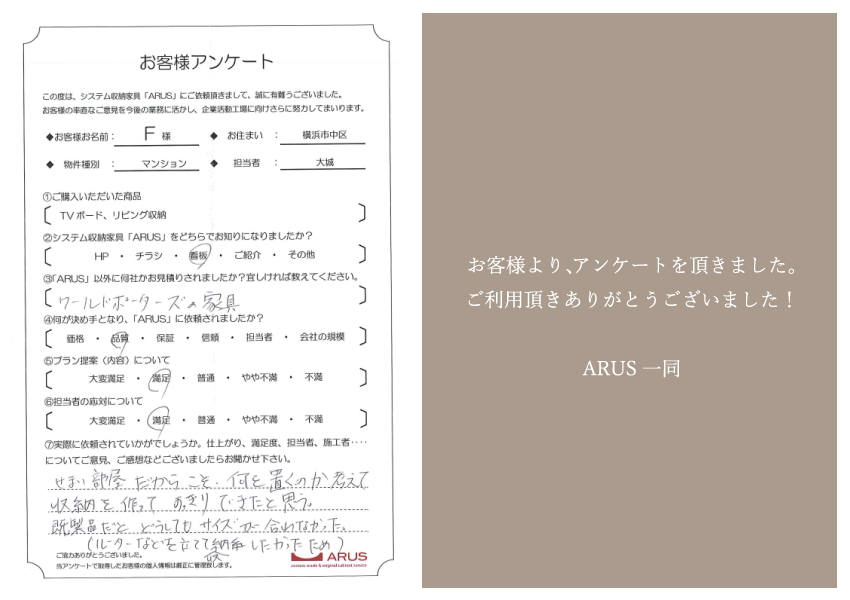 お客様アンケート
この度は、システム収納家具「ARUS」にご依頼頂きまして、誠に有難うございました。
お客様の率直なご意見を今後の業務に活かし、企業活動工場に向けさらに努力してまいります。
◆お客様お名前： F 様 ◆ お住まい ： 横浜市中区
◆ 物件種別 ： マンション ◆ 担当者 ： 大城
①ご購入いただいた商品
TVボード、リビング収納
②システム収納家具「ARUS」をどちらでお知りになりましたか？
HP ・ チラシ ・ 看板 ・ ご紹介 ・ その他
③「ARUS」以外に何社かお見積りされましたか？宜しければ教えてください。
ワールドポーターズの家具
④何が決め手となり、「ARUS」に依頼されましたか？
価格 ・ 品質 ・ 保証 ・ 信頼 ・ 担当者 ・ 会社の規模
⑤プラン提案（内容）について
大変満足 ・ 満足 ・ 普通 ・ やや不満 ・ 不満
⑥担当者の応対について
大変満足 ・ 満足 ・ 普通 ・ やや不満 ・ 不満
⑦実際に依頼されていかがでしょうか。仕上がり、満足度、担当者、施工者････
についてご意見、ご感想などございましたらお聞かせ下さい。
せまい部屋だからこそ、何を置くのか考えて
収納を作って すっきりできたと思う。
既製品だと どうしても サイズが合わなかった。
（ルーターなどを立てて収納したかったため）
ご協力ありがとうございました。
当アンケートで取得したお客様の個人情報は厳正に管理致します。
ARUS
custom-made & original cabinet service
お客様より、アンケートを頂きました。
ご利用頂きありがとうございました！
ARUS 一同